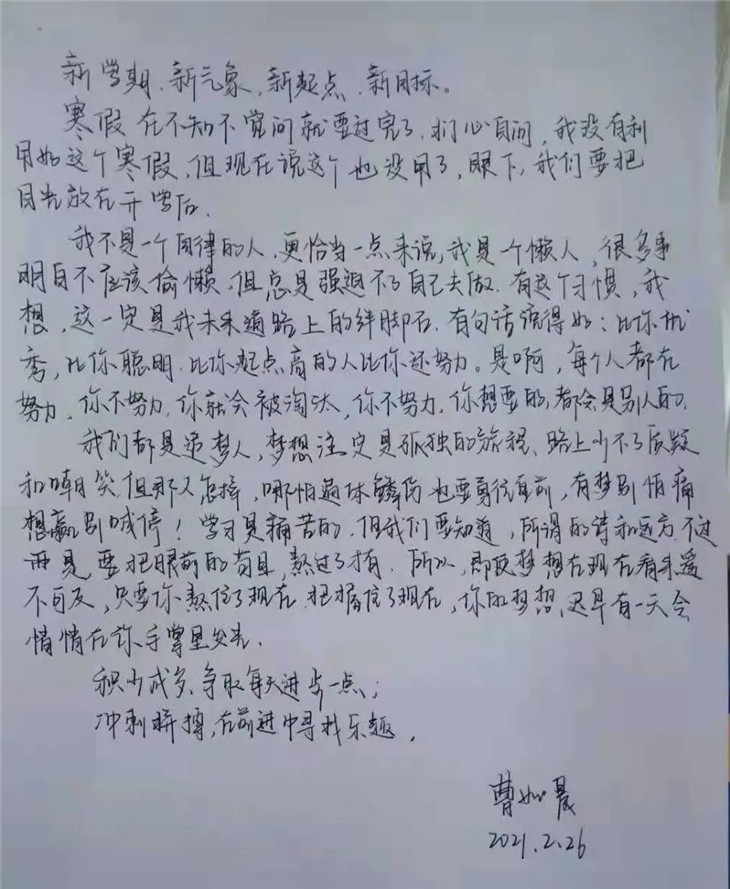 新学期、新气象、新起点、新目标。
寒假在不知不觉间就要过完了,扪心自问,我没有利
用好这个寒假,但现在说这个也没用了,眼下,我们要把
目光放在开学后.
我不是一个自律的人,更恰当一点来说,我是一个懒人,很多事
明白不应该偷懒,但总是强迫不了自己去做.有这个习惯,我
想,这一定是我未来道路上的绊脚石.有句话说得好:比你优
秀,比你聪明,比你起点高的人比你还努力。是啊,每个人都在
努力,你不努力,你就会被淘汰,你不努力,你想要的,都会是别人的.
我们都是追梦人,梦想注定是孤独的旅程、路上少不了质疑
和嘲笑但那又怎样,哪怕遍体鳞伤也要勇往直前,有梦别怕痛
想赢别喊停!学习是痛苦的,但我们要知道,所谓的诗和远方不过
是,要把眼前的苟且,熬过了才有.所以,即使梦想在现在看来遥
不可及,只要你熬住了现在,把握住了现在,你的梦想,迟早有一天会
悄悄在你手掌里发光.
积少成多,争取每天进步一点;
冲刺拼搏,在前进中寻找乐趣.
曹如晨
2021.2.26